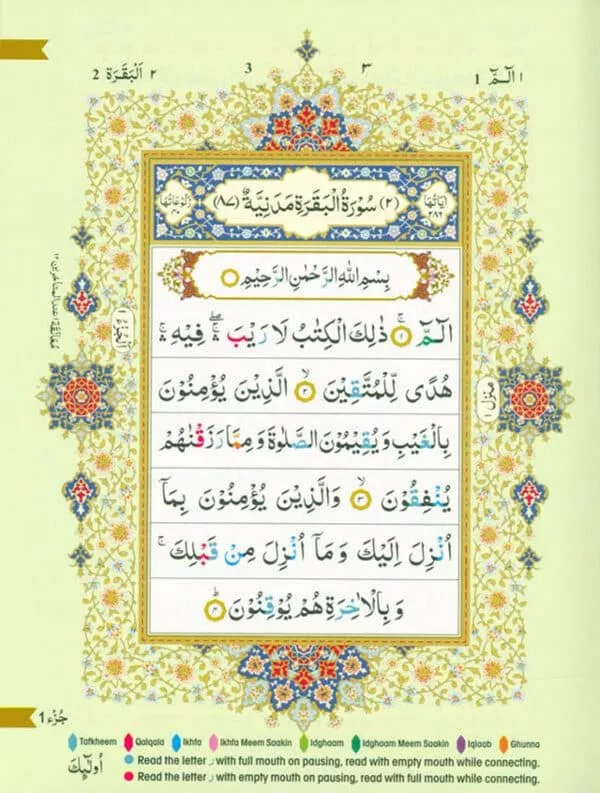 ١ الٓمّٓ 1
3 ٣
٢ اَلْبَقَرَة 2
اٰيَاتُهَا ٢٨٦
(٢) سُوْرَةُ الْبَقَرَةِ مَدَنِيَّةٌ (٨٧)
رُكُوْعَاتُهَا ٤٠
بِسْمِ اللهِ الرَّحْمٰنِ الرَّحِيْمِ
الٓمّٓ ۚ ١ ذٰلِكَ الْكِتٰبُ لَا رَيْبَ ۛۖ فِيْهِ ۛۚ
هُدًى لِّلْمُتَّقِيْنَ ۙ ٢ الَّذِيْنَ يُؤْمِنُوْنَ
بِالْغَيْبِ وَيُقِيْمُوْنَ الصَّلٰوةَ وَمِمَّا رَزَقْنٰهُمْ
يُنْفِقُوْنَ ۙ ٣ وَالَّذِيْنَ يُؤْمِنُوْنَ بِمَآ
اُنْزِلَ اِلَيْكَ وَمَآ اُنْزِلَ مِنْ قَبْلِكَ ۚ
وَبِالْاٰخِرَةِ هُمْ يُوْقِنُوْنَ ؕ ٤
منزل ١
اَلْجُزْءُ ١
مُعَانَقَة ١ عند المتأخرين ١٢
جُزْء 1
Tafkheem Qalqala Ikhfa Ikhfa Meem Saakin Idghaam Idghaam Meem Saakin Iqlaab Ghunna
Read the letter ر with full mouth on pausing, read with empty mouth while connecting.
Read the letter ر with empty mouth on pausing, read with full mouth while connecting.
اُولٰٓئِكَ